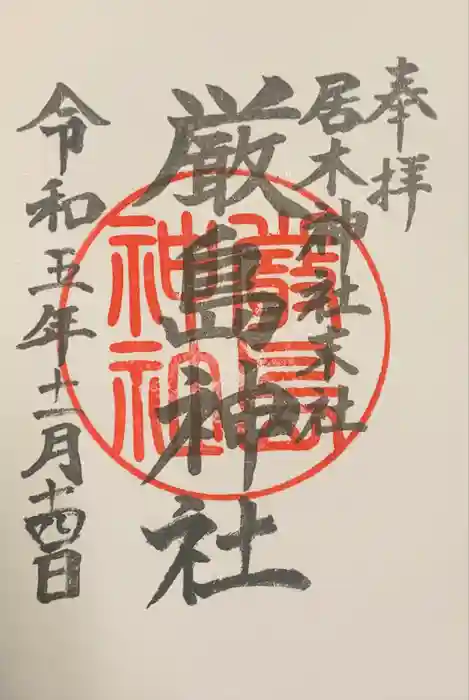 奉拝
居木神社末社
厳島神社
令和五年十一月十四日
嚴島
神